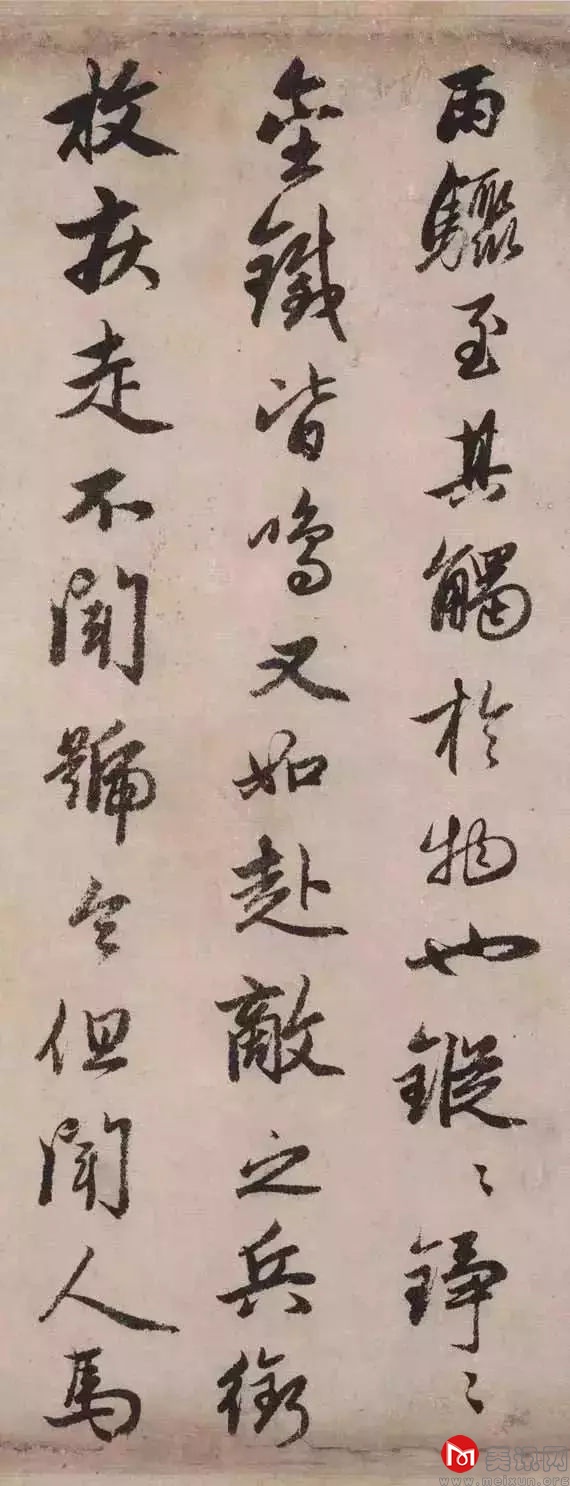 雨驟至其觸於物也鏦〻錚〻
金鐵皆鳴又如赴敵之兵銜
枚疾走不聞號令但聞人馬
美讯网
www.meixun.org